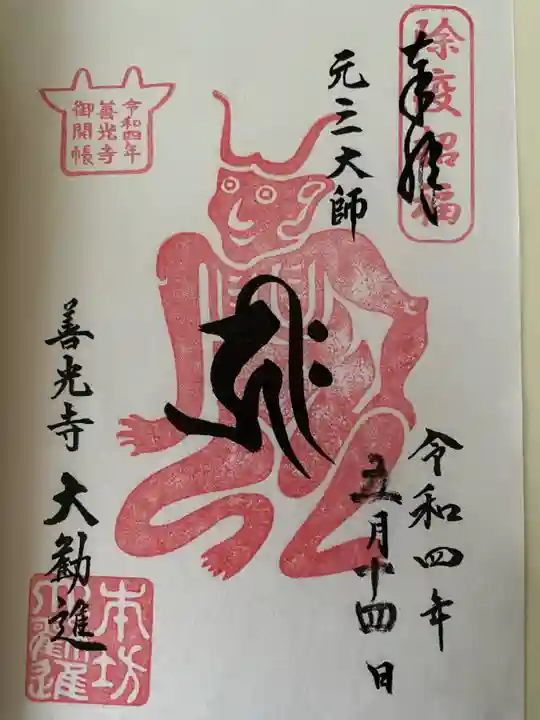 除疫招福
奉拝
元三大師
令和四年
善光寺
御開帳
令和四年
五月十四日
善光寺 大勧進
本坊
大勧進